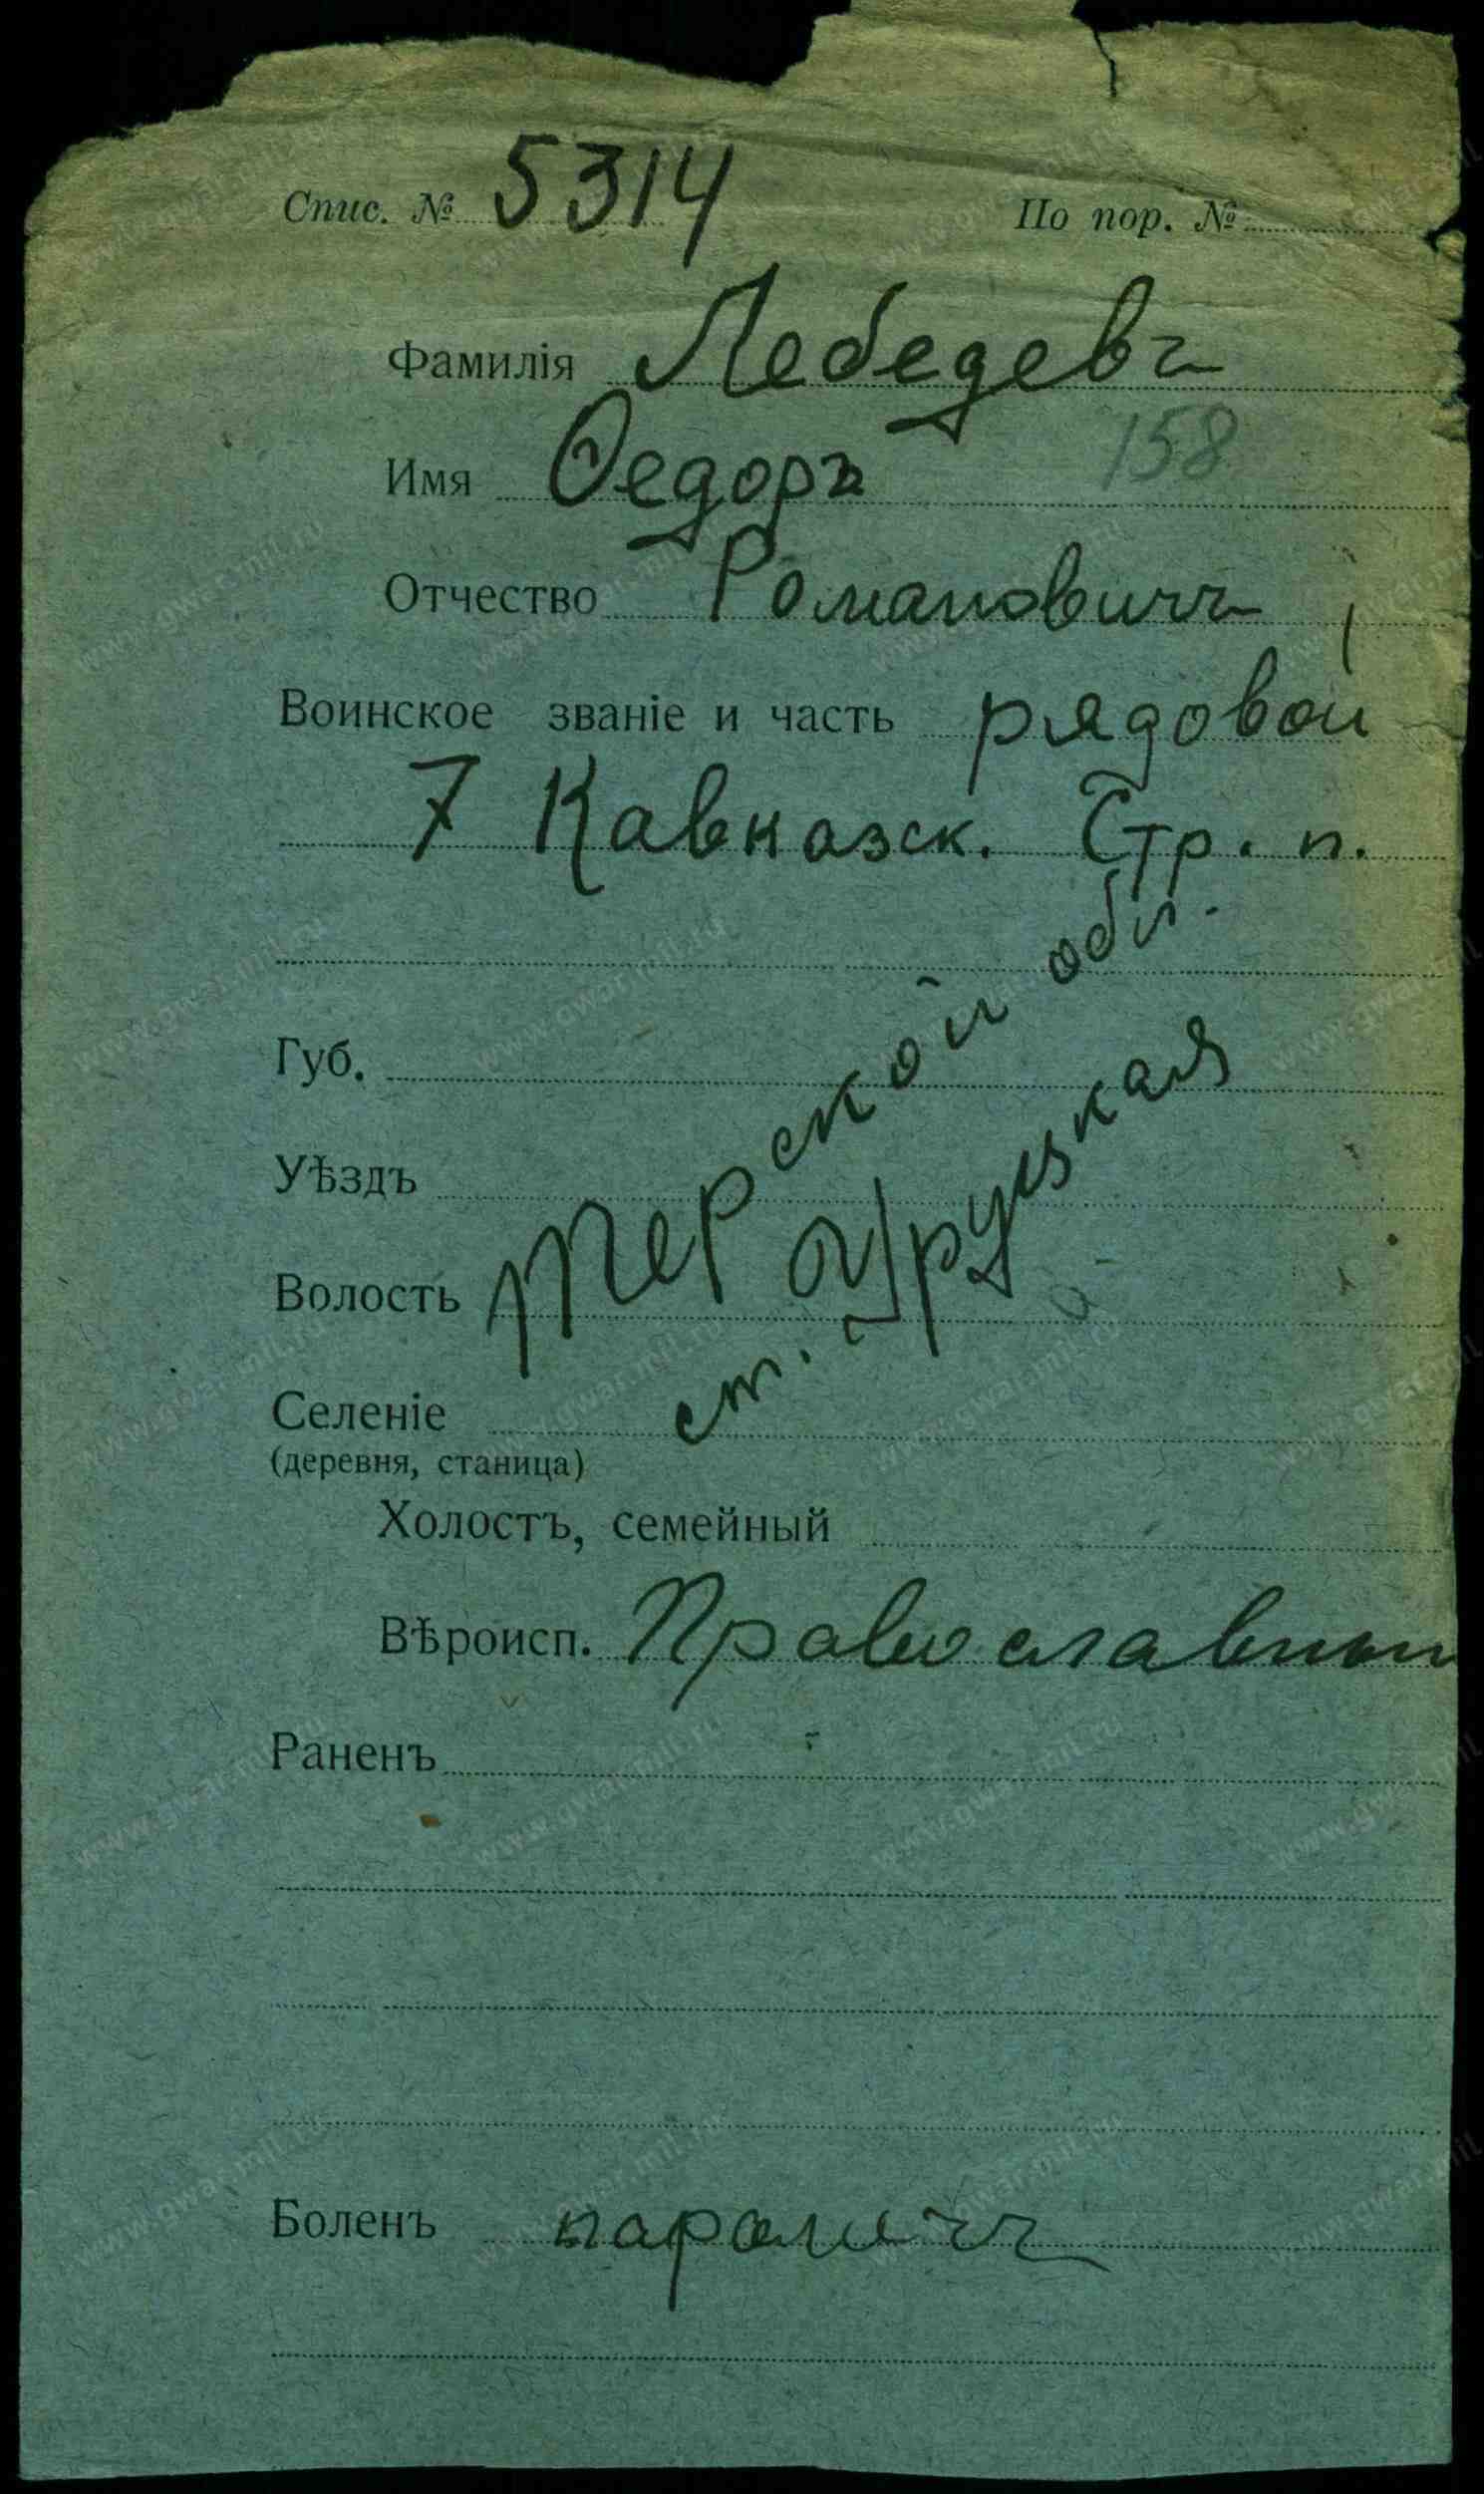 Спис. № 5314 По пор. №
Фамилія Лебедевъ
Имя Ѳедоръ 158
Отчество Романовичъ
Воинское званіе и часть рядовой
7 Кавказск. Стр. п.
Губ.
Уѣздъ
Терской обл.
Волость
ст. Урузкая
Селеніе
(деревня, станица)
Холостъ, семейный
Вѣроисп. Православный
Раненъ
Боленъ параличъ
www.gwar.mil.ru